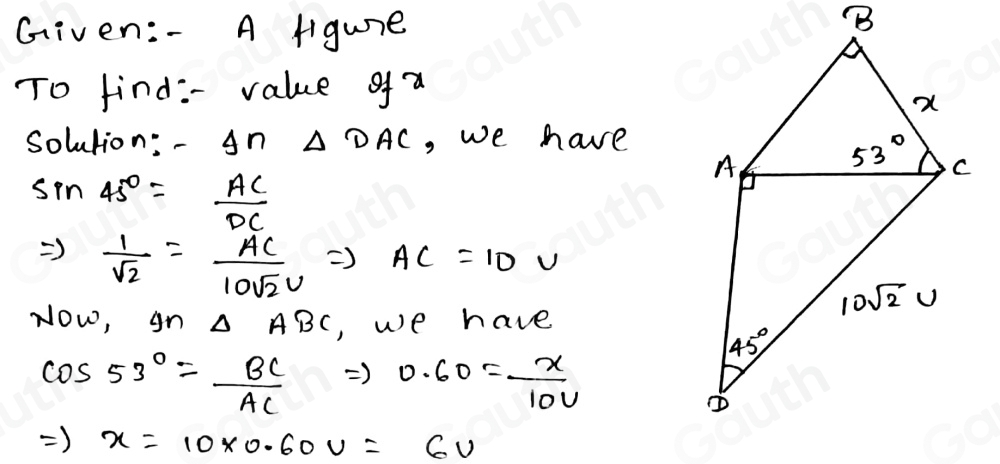 Given:- A figure
To find:- value of x
Solution:- In △ DAC, we have
sin 45° = AC/DC
=) 1/√2 = AC/10√2 U =) AC = 10 U
Now, In △ ABC, we have
cos 53° = BC/AC =) 0.60 = x/10U
=) x = 10×0.60 U = 6U
B
x
A
53°
C
10√2 U
45°
D
Gauth